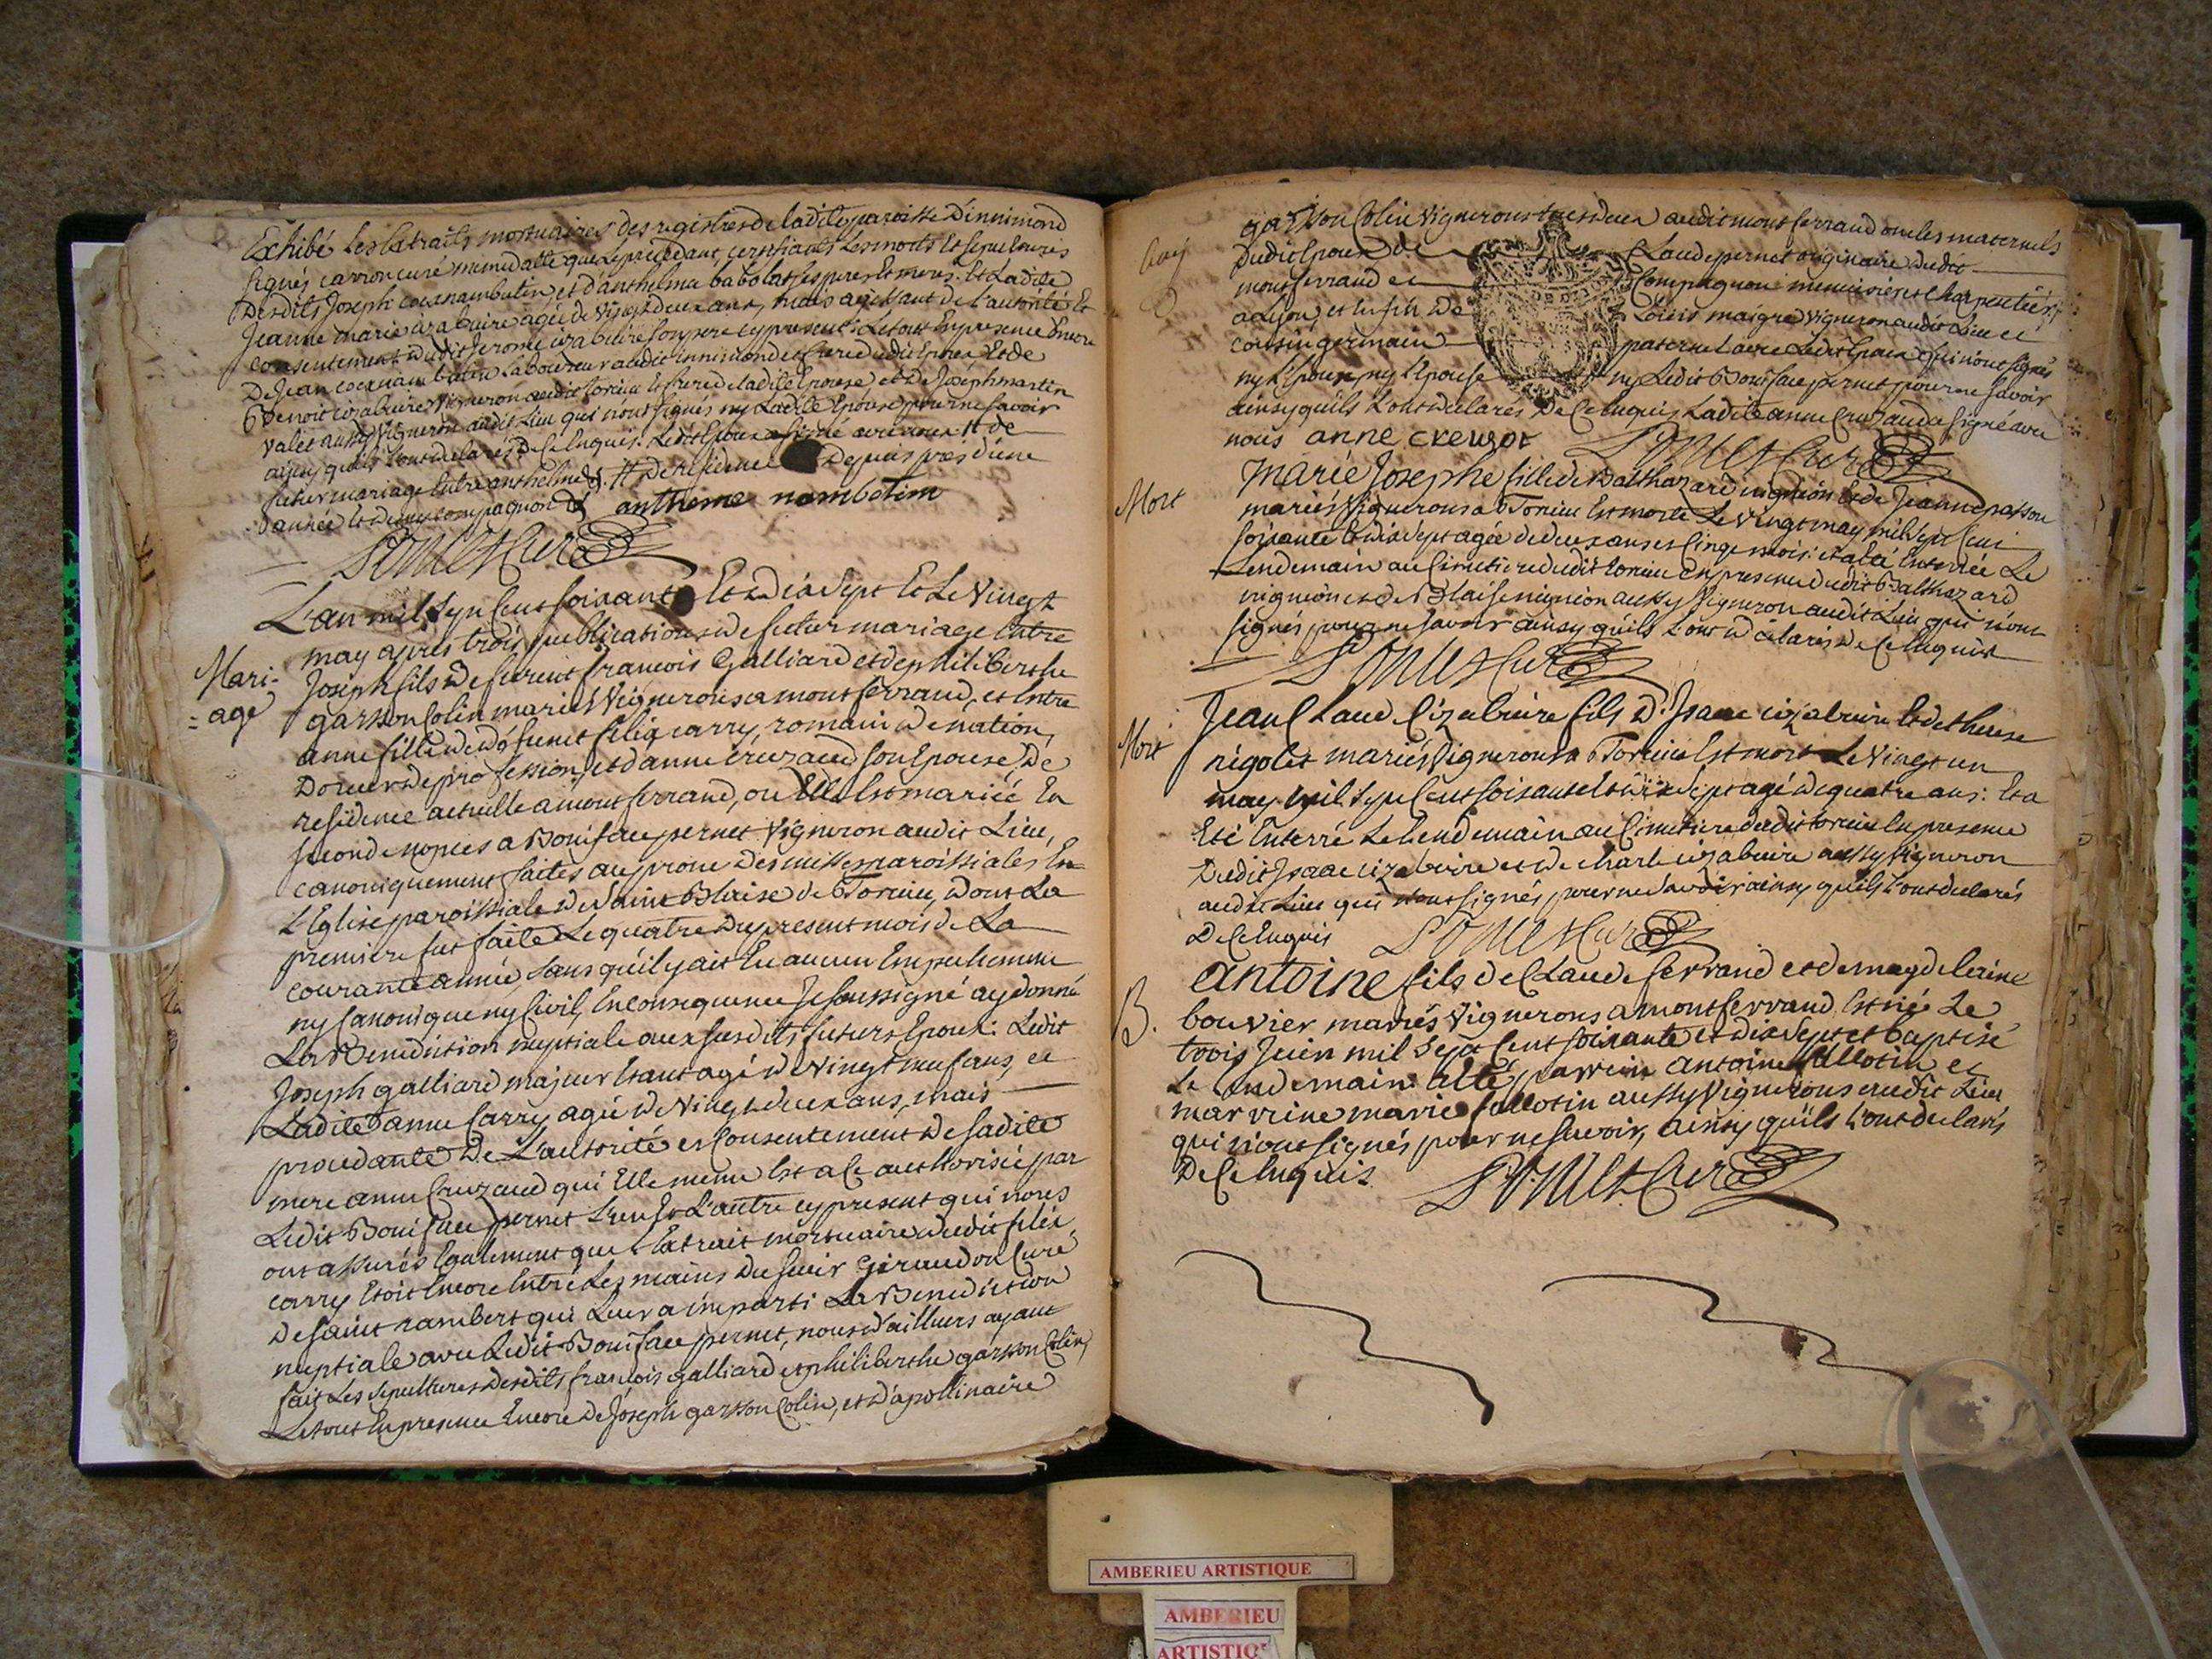 Exhibé les Extraits mortuaires des registres de ladite paroisse d'innimond
signés carron curé meme datte que le precedant, certifiants les morts Et sepultures
desdits Joseph cocnambutin, et d'anthelma babolat ses pere Et mere. Et Ladite
Jeanne marie cizabuire agée de vingt deux ans, mais agissant de l'autorité Et
consentement dudit Jerome cizabuire son pere cy present. Le tout En presence Encore
De Jean cocnambutin Laboureur audit innimond et frere dudit Epoux Et de
Benoit cizabuire vigneron audit torcieu Et frere de ladite Epouse et de Joseph martin
valet aussy vigneron audit Lieu qui n'ont signés ny Ladite Epouse pour ne savoir
ainsy qu'ils L'ont declarés De Ce Enquis. Ledit Epoux a signé avec nous # de
futur mariage Entre anthelme # De residence Depuis pres d'une
année compagnon anthleme nambotim
curé
L'an mil sept Cent soixante Et dix sept Et Le vingt
may apres trois publications de futur mariage Entre
Mari-
=age
Joseph fils de feurent francois Galliard et de philiberthe
garsson Colin mariés vignerons a montferrand, et Entre
anne fille de feu felix carry, romain de nation,
Doreur de profession, et d'anne Creuzaud son Epouse De
residence actuelle a montferrand, ou Elle Est mariée En
seconde nopces a Boniface pernet vigneron audit Lieu,
canoniquement faites au prone des messes paroissiales En
L'Eglise paroissiale de saint Blaise de Torcieu, dont La
premiere fut faite Le quatre du present mois de La
courante année, sans qu'il y ait Eu aucun Empechement
ny Canonique ny Civil, En consequence Je soussigné ay donné
La Benediction nuptiale aux susdits futurs Epoux: Ledit
Joseph galliard majeur Etant agé de vingt neuf ans, et
Ladite anne Carry agée de vingt deux ans, mais
procedante De L'autorité et Consentement de sadite
mere anne Cruzaud qui Elle meme Est a Ce authorisée par
Ledit Boniface pernet L'un Et L'autre cy present qui nous
ont assurés Egalement que L'Extrait mortuaire dudit felix
carry Etoit Encore Entre Les mains du sieur Giraudon Curé
De saint rambert qui Leur a imparti La Benediction
nuptiale avec Ledit Boniface pernet, nous d'ailleurs ayant
fait Les sepultures desdits francois galliard et philiberthe garsson Colin,
Le tout En presence Encore de Joseph garsson Colin, et d'apollinaire
garsson Colin vignerons tous deux audit montferrand oncles maternels
dudit Epoux de Claude pernet originaire dudit
montferrand et Compagnon menuisier et charpentier
a Lyon, et Enfin de Louis maigre vigneron audit Lieu et
cousin germain paternel avec Ledit Epoux qui n'ont signés
ny L'Epoux, ny L'Epouse ny Ledit Boniface pernet pour ne savoir
ainsy qu'ils L'ont declarés De Ce Enquis, Ladite anne Cruzaud a signé avec
nous anne creusot curé
Mort
Marie Josephe fille de Balthazard mignion Et de Jeanne passou
mariés vignerons a Torcieu Est morte Le vingt may mil sept Cent
soixante Et dix sept agée de deux ans et Cinq mois: et a eté Enterrée Le
Lendemain au Cimetiere dudit torcieu En presence dudit Balthazard
mignion et de Blaise mignion aussy vigneron audit Lieu qui n'ont
signés pour ne savoir ainsy qu'ils L'ont declarés De Ce Enquis
curé
Mort
Jean Claude Cizabuire fils d'Isaac cizabuire Et de therese
rigolet mariés vignerons a Torcieu Est mort Le vingt un
may mil sept Cent soixante Et dix sept agé de quatre ans: Et a
Eté Enterré Le Lendemain au Cimetiere dudit torcieu En presence
dudit Isaac cizabuire et de Charle cizabuire aussy vigneron
audit Lieu qui n'ont signés, pour ne savoir ainsy qu'ils L'ont declarés
De Ce Enquis curé
B.
antoine fils de Claude ferrand et de magdelaine
bouvier mariés vignerons a montferrand, Est né Le
trois Juin mil sept Cent soixante et dix sept et baptisé
Le Lendemain a eté parrein antoine fallotin et
marreine marie fallotin aussy vignerons audit Lieu
qui n'ont signés pour ne savoir, ainsy qu'ils L'ont declarés
De Ce Enquis. curé
AMBERIEU ARTISTIQUE
AMBERIEU
ARTISTIQ